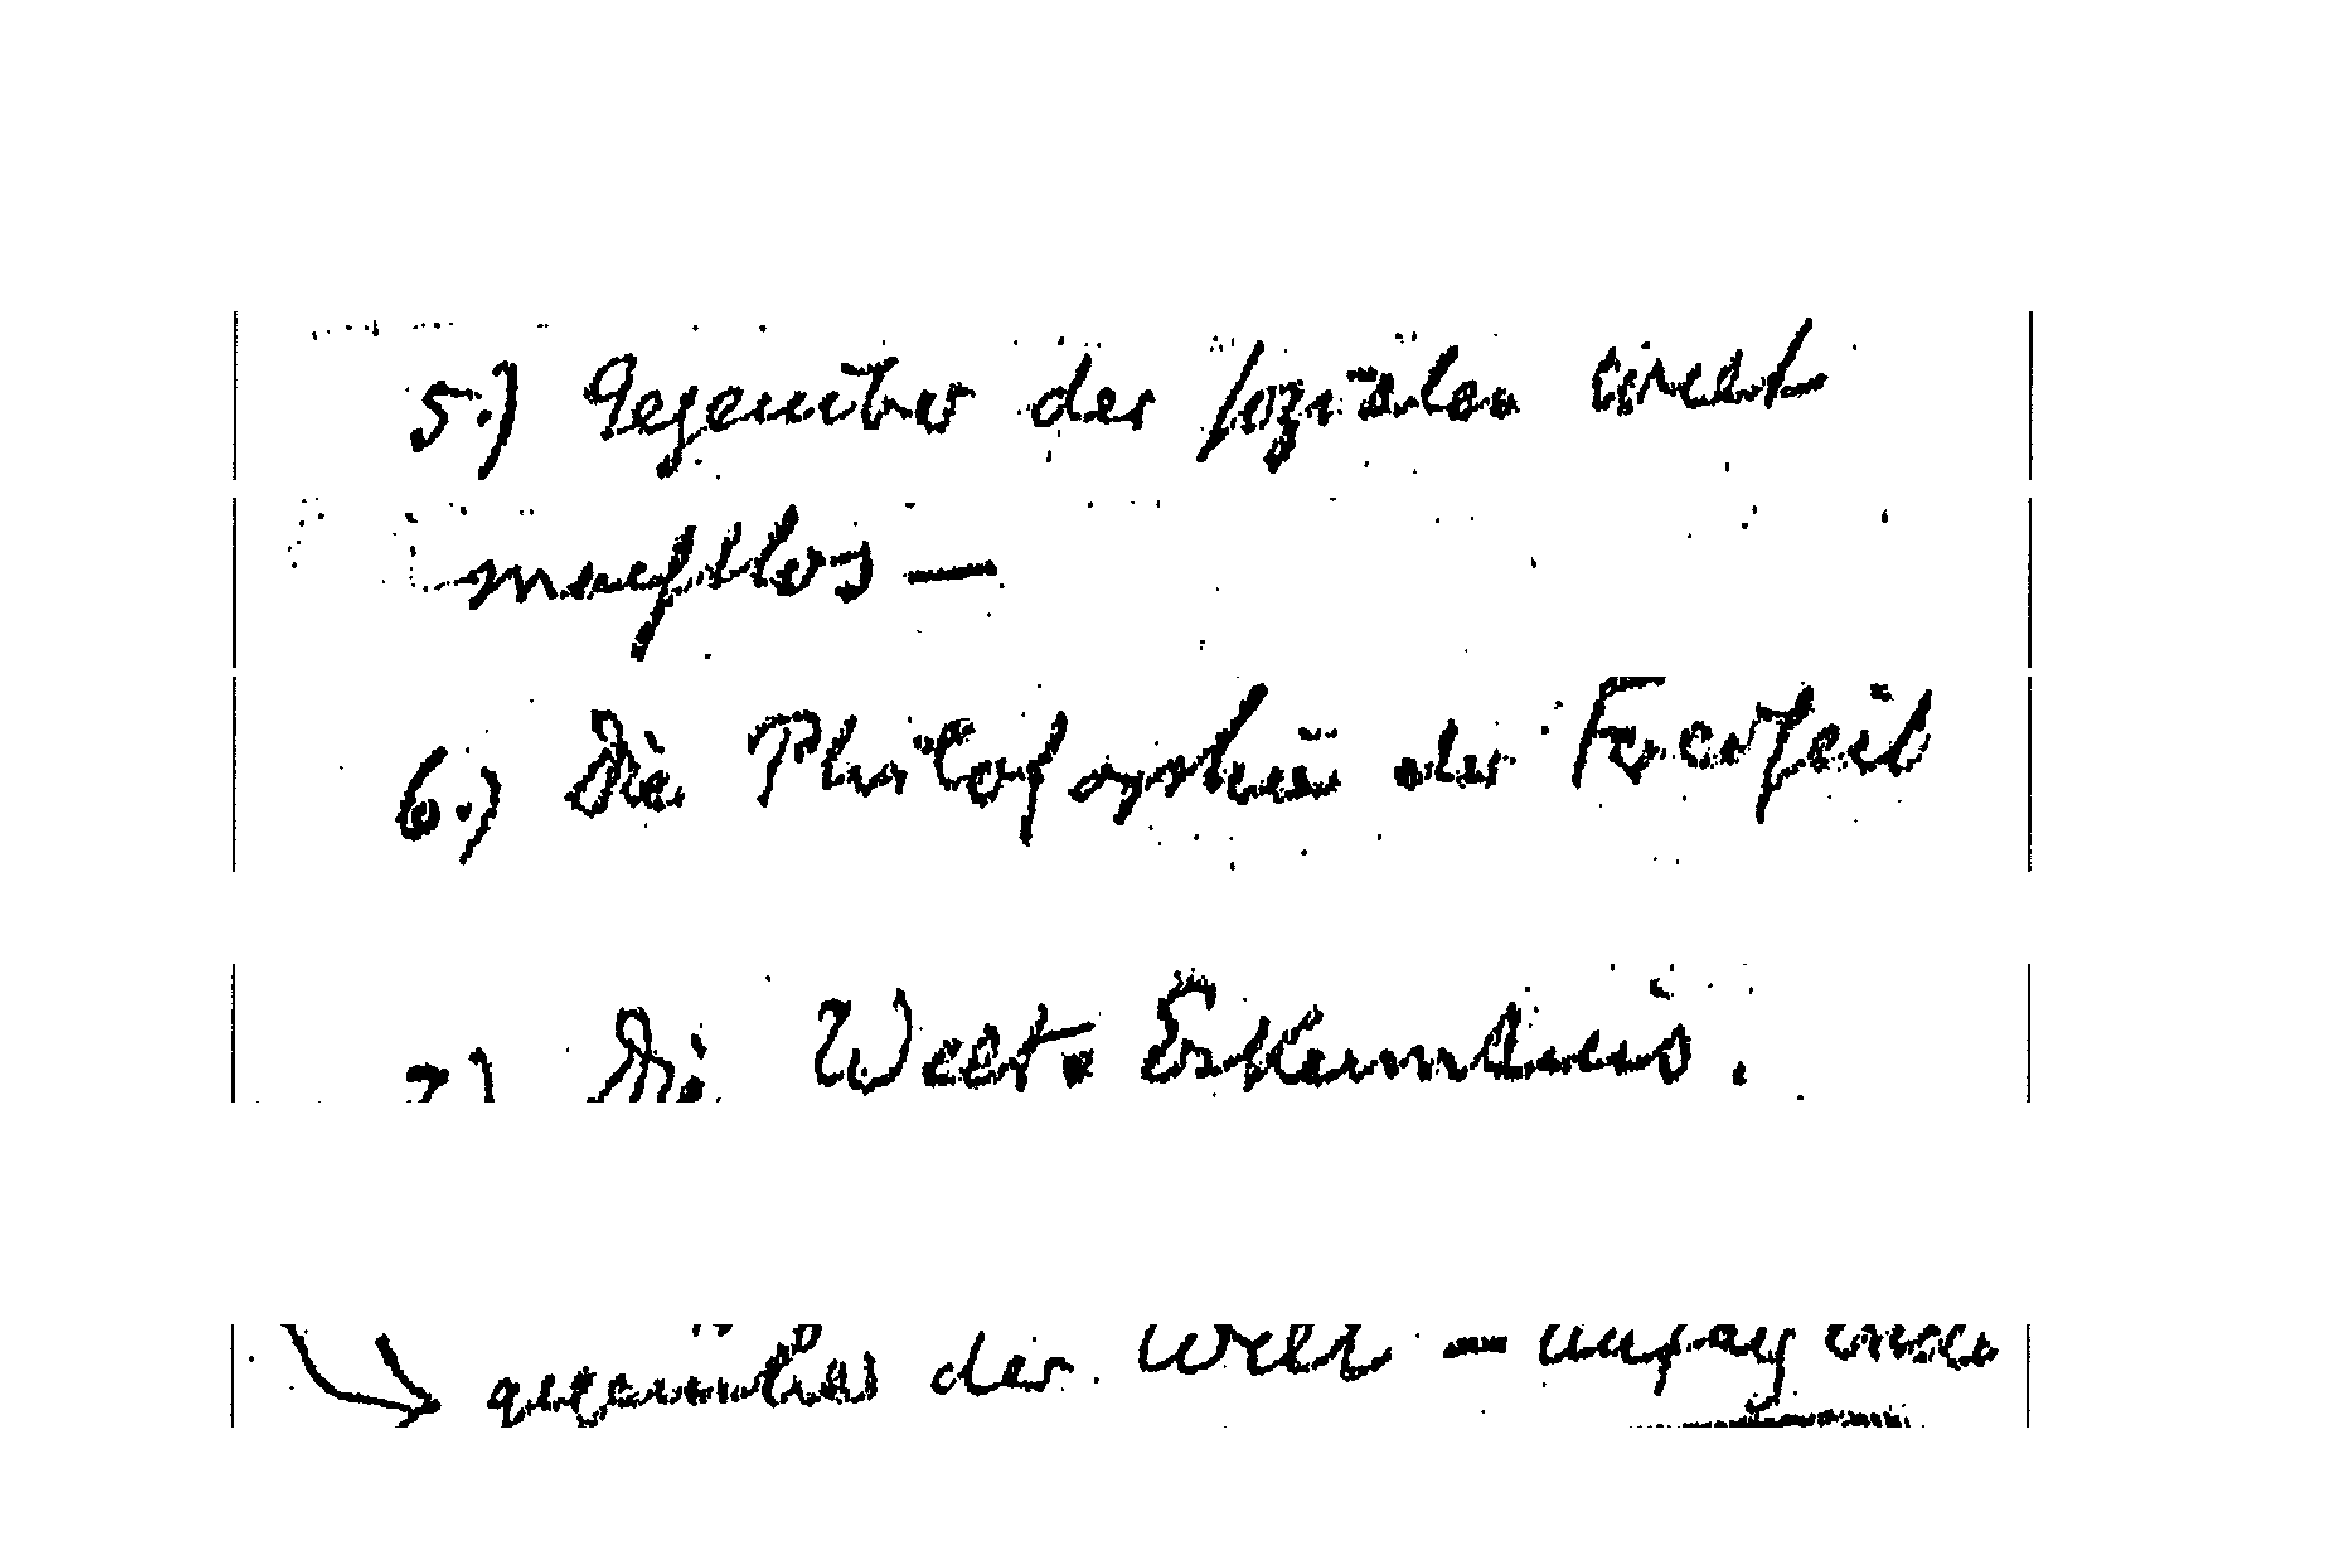 5.) Gegenüber der sozialen Welt
machtlos —
6.) Die Philosophie der Freiheit
7.) Die Welt-Erkenntnis.
gegenüber der Welt —